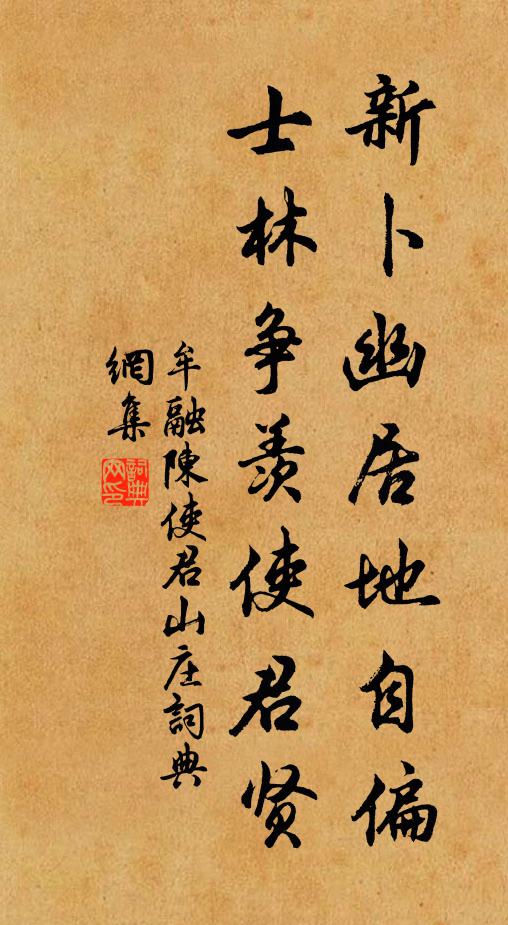 新卜幽居地自偏
士林争羡使君贤
牟融陳使君山庄詞典
網集
詞典网印